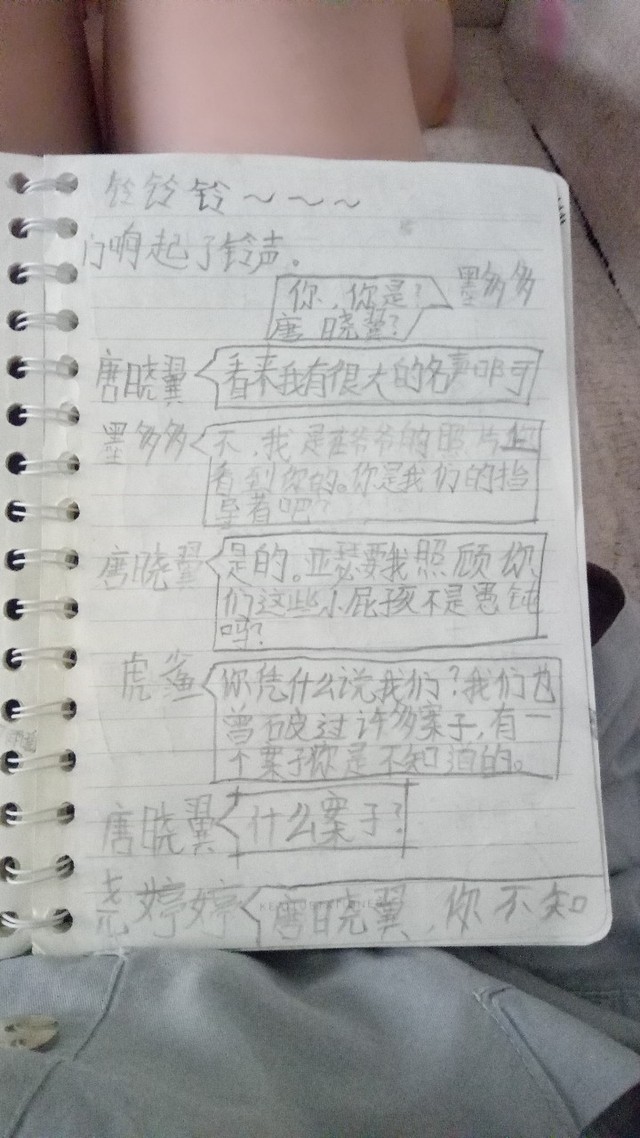 铃铃铃～～～
响起了铃声。
你，你是？ 墨多多
唐晓翼？
唐晓翼 看来我有很大的名声耶
墨多多 不，我是在爷爷的照片
看到你的。你是我们的指
导者吧？
唐晓翼 是的。亚瑟要我照顾你
们这些小屁孩不是愚钝
吗？
虎鲨 你凭什么说我们？我们也
曾破过许多案子，有一
个案子你是不知道的。
唐晓翼 什么案子？
尧婷婷 唐晓翼，你不知